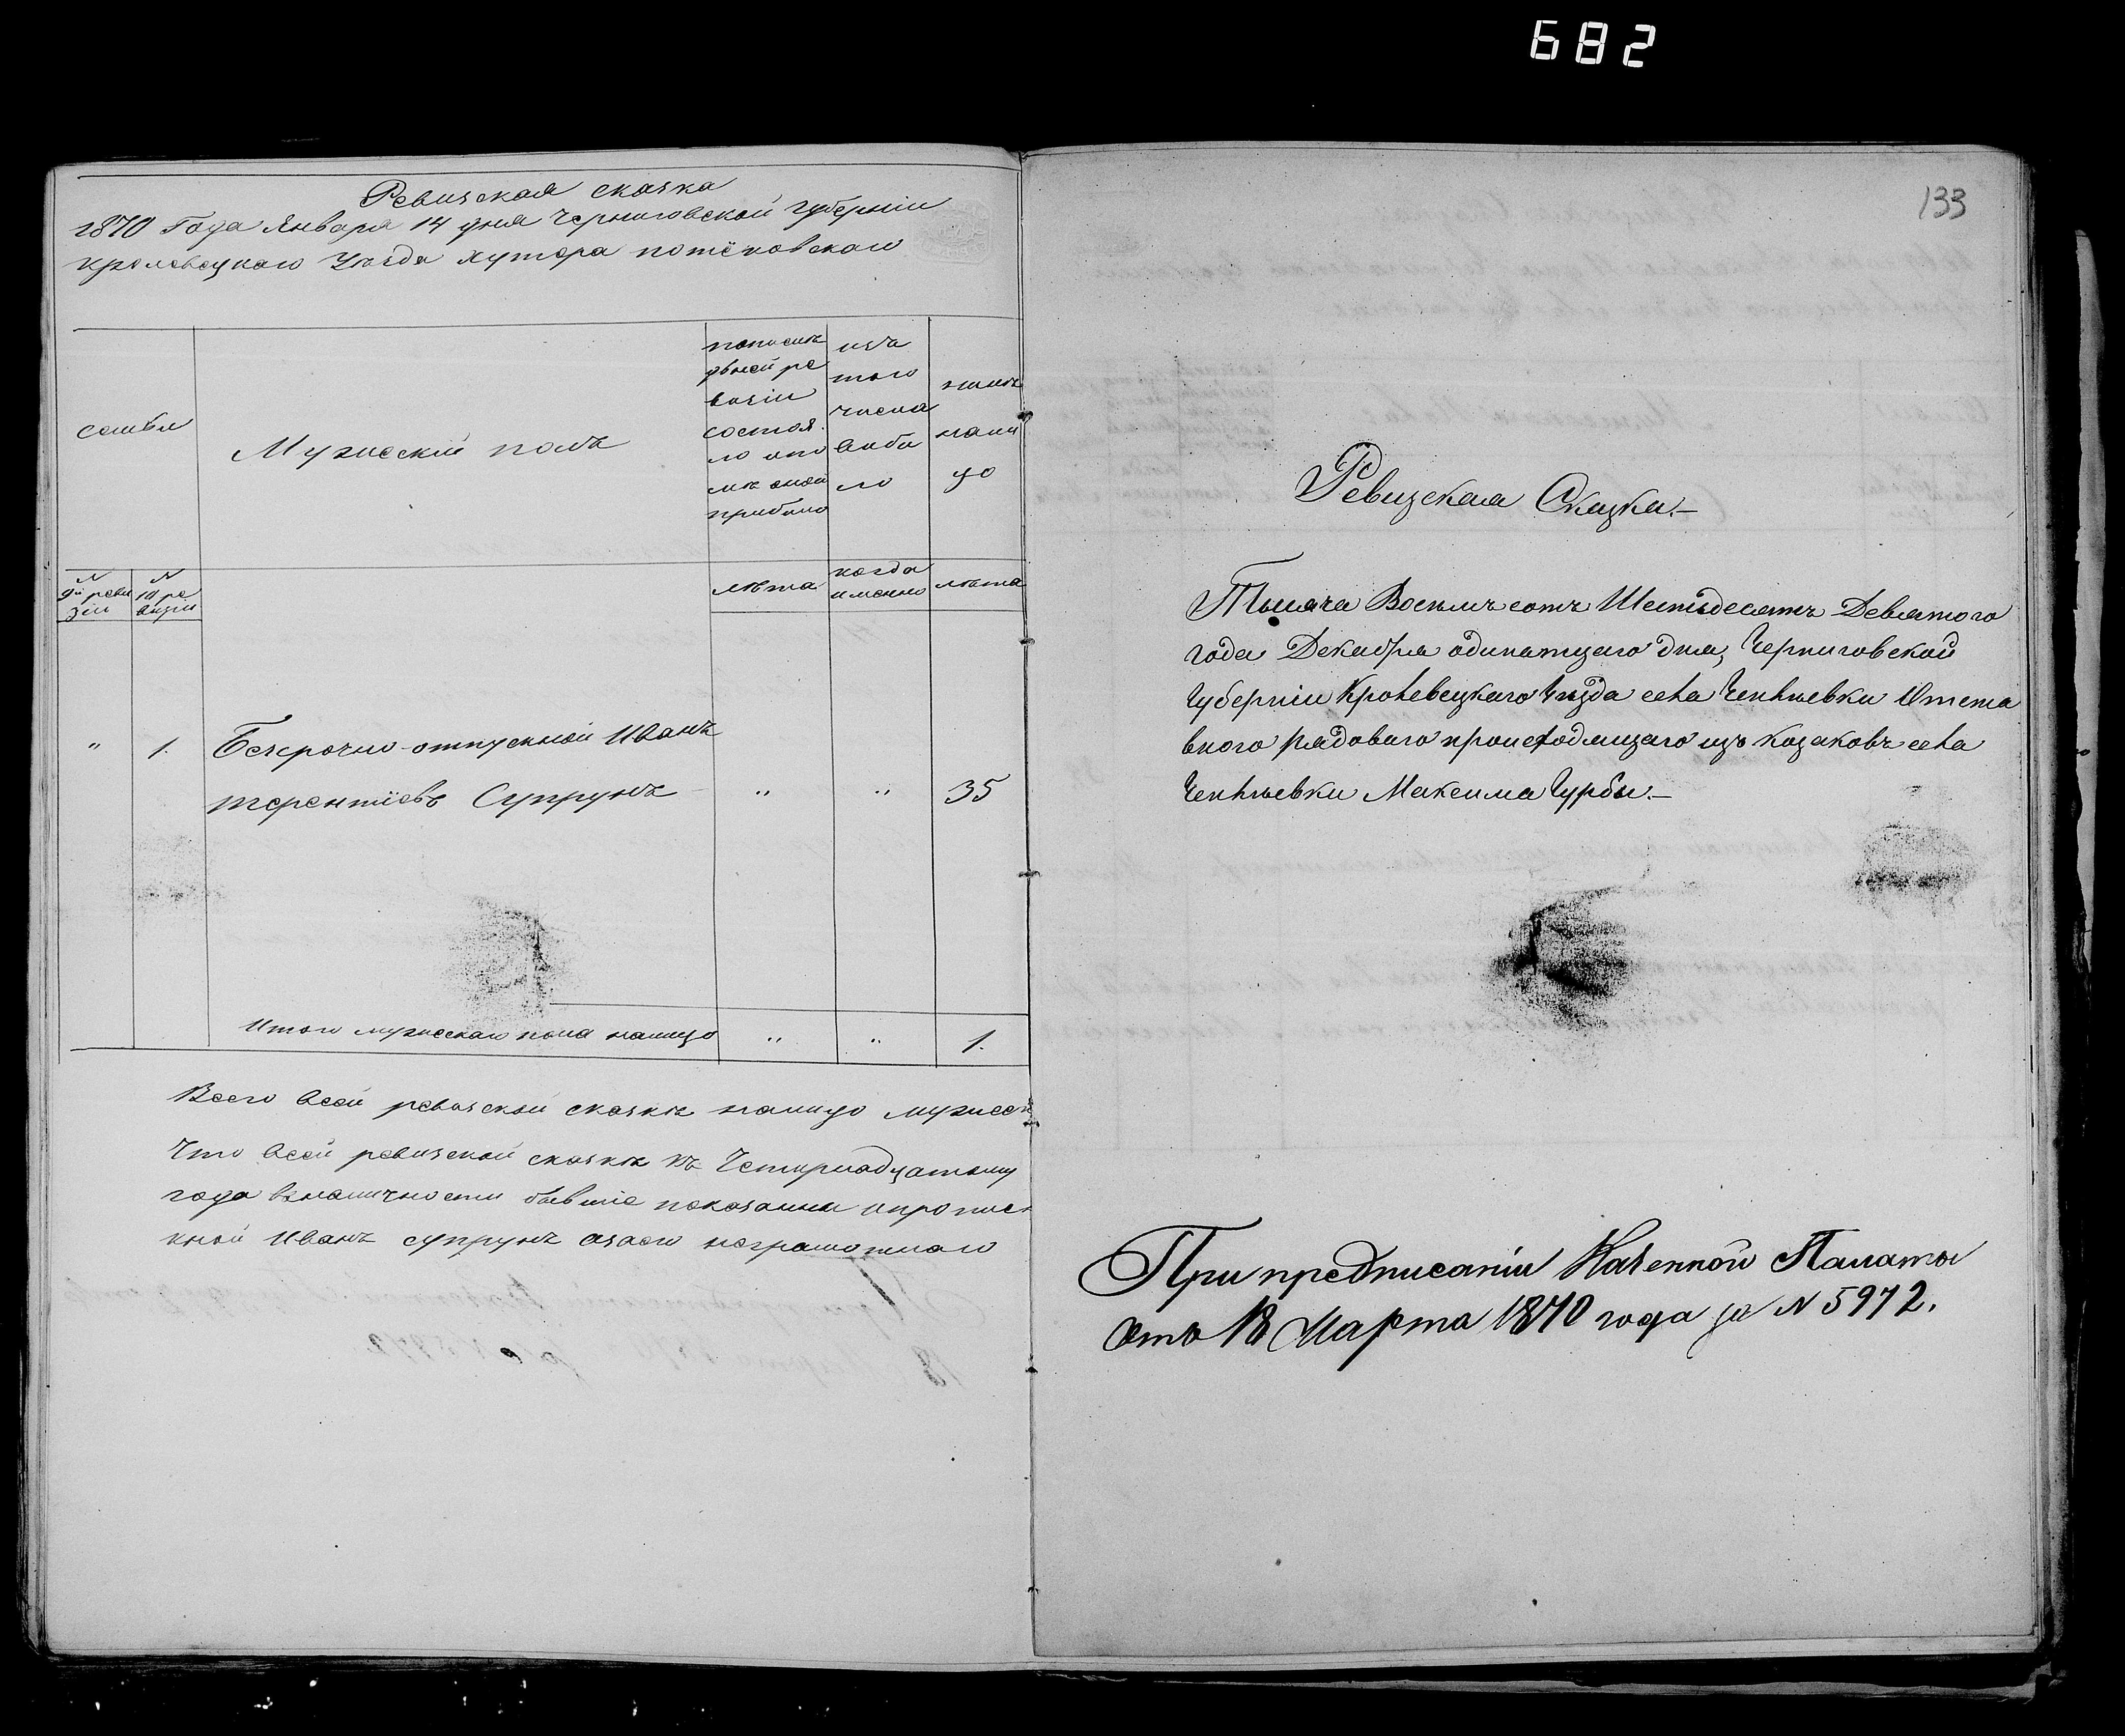 682
Ревизская сказка
1870 Года Января 14 дня Черниговской Губерніи
Кролевецкаго Уѣзда хутора потёковскаго
семьи
Мужескій полъ
пописле
дьней ре
визіи
состоя
ло ипо
слѣ оной
прибыло
изъ
того
числа
выбы
ло
нынѣ
нали
цо
N 9й реви зіи
N 10 ре визіи
лѣта
когда именно
лѣта
" 1. Безсрочно-отпускной Иванъ
терентіевъ Супрунъ " " 35
Итого мужескаго пола налицо " " 1.
Всего всей ревизской сказкѣ налицо мужеск
Что всей ревизской сказкѣ къ Четырнадцатому
года вналичности бывшіе показаны ипропис
кной Иванъ супрунъ азаего неграмотнаго
133
Ревизская Сказка.—
Тысяча Восемъсотъ Шестьдесятъ Девятого
года Декабря одинатцаго дня, Черниговской
Губерніи Кролевецкаго Уѣзда села Чепльевки Отста
вного рядоваго происходящаго изъ козаковъ села
Чепльевки Максима Гурбы.—
При предписаніи Казенной Палаты
отъ 18 Марта 1870 года за N 5972.